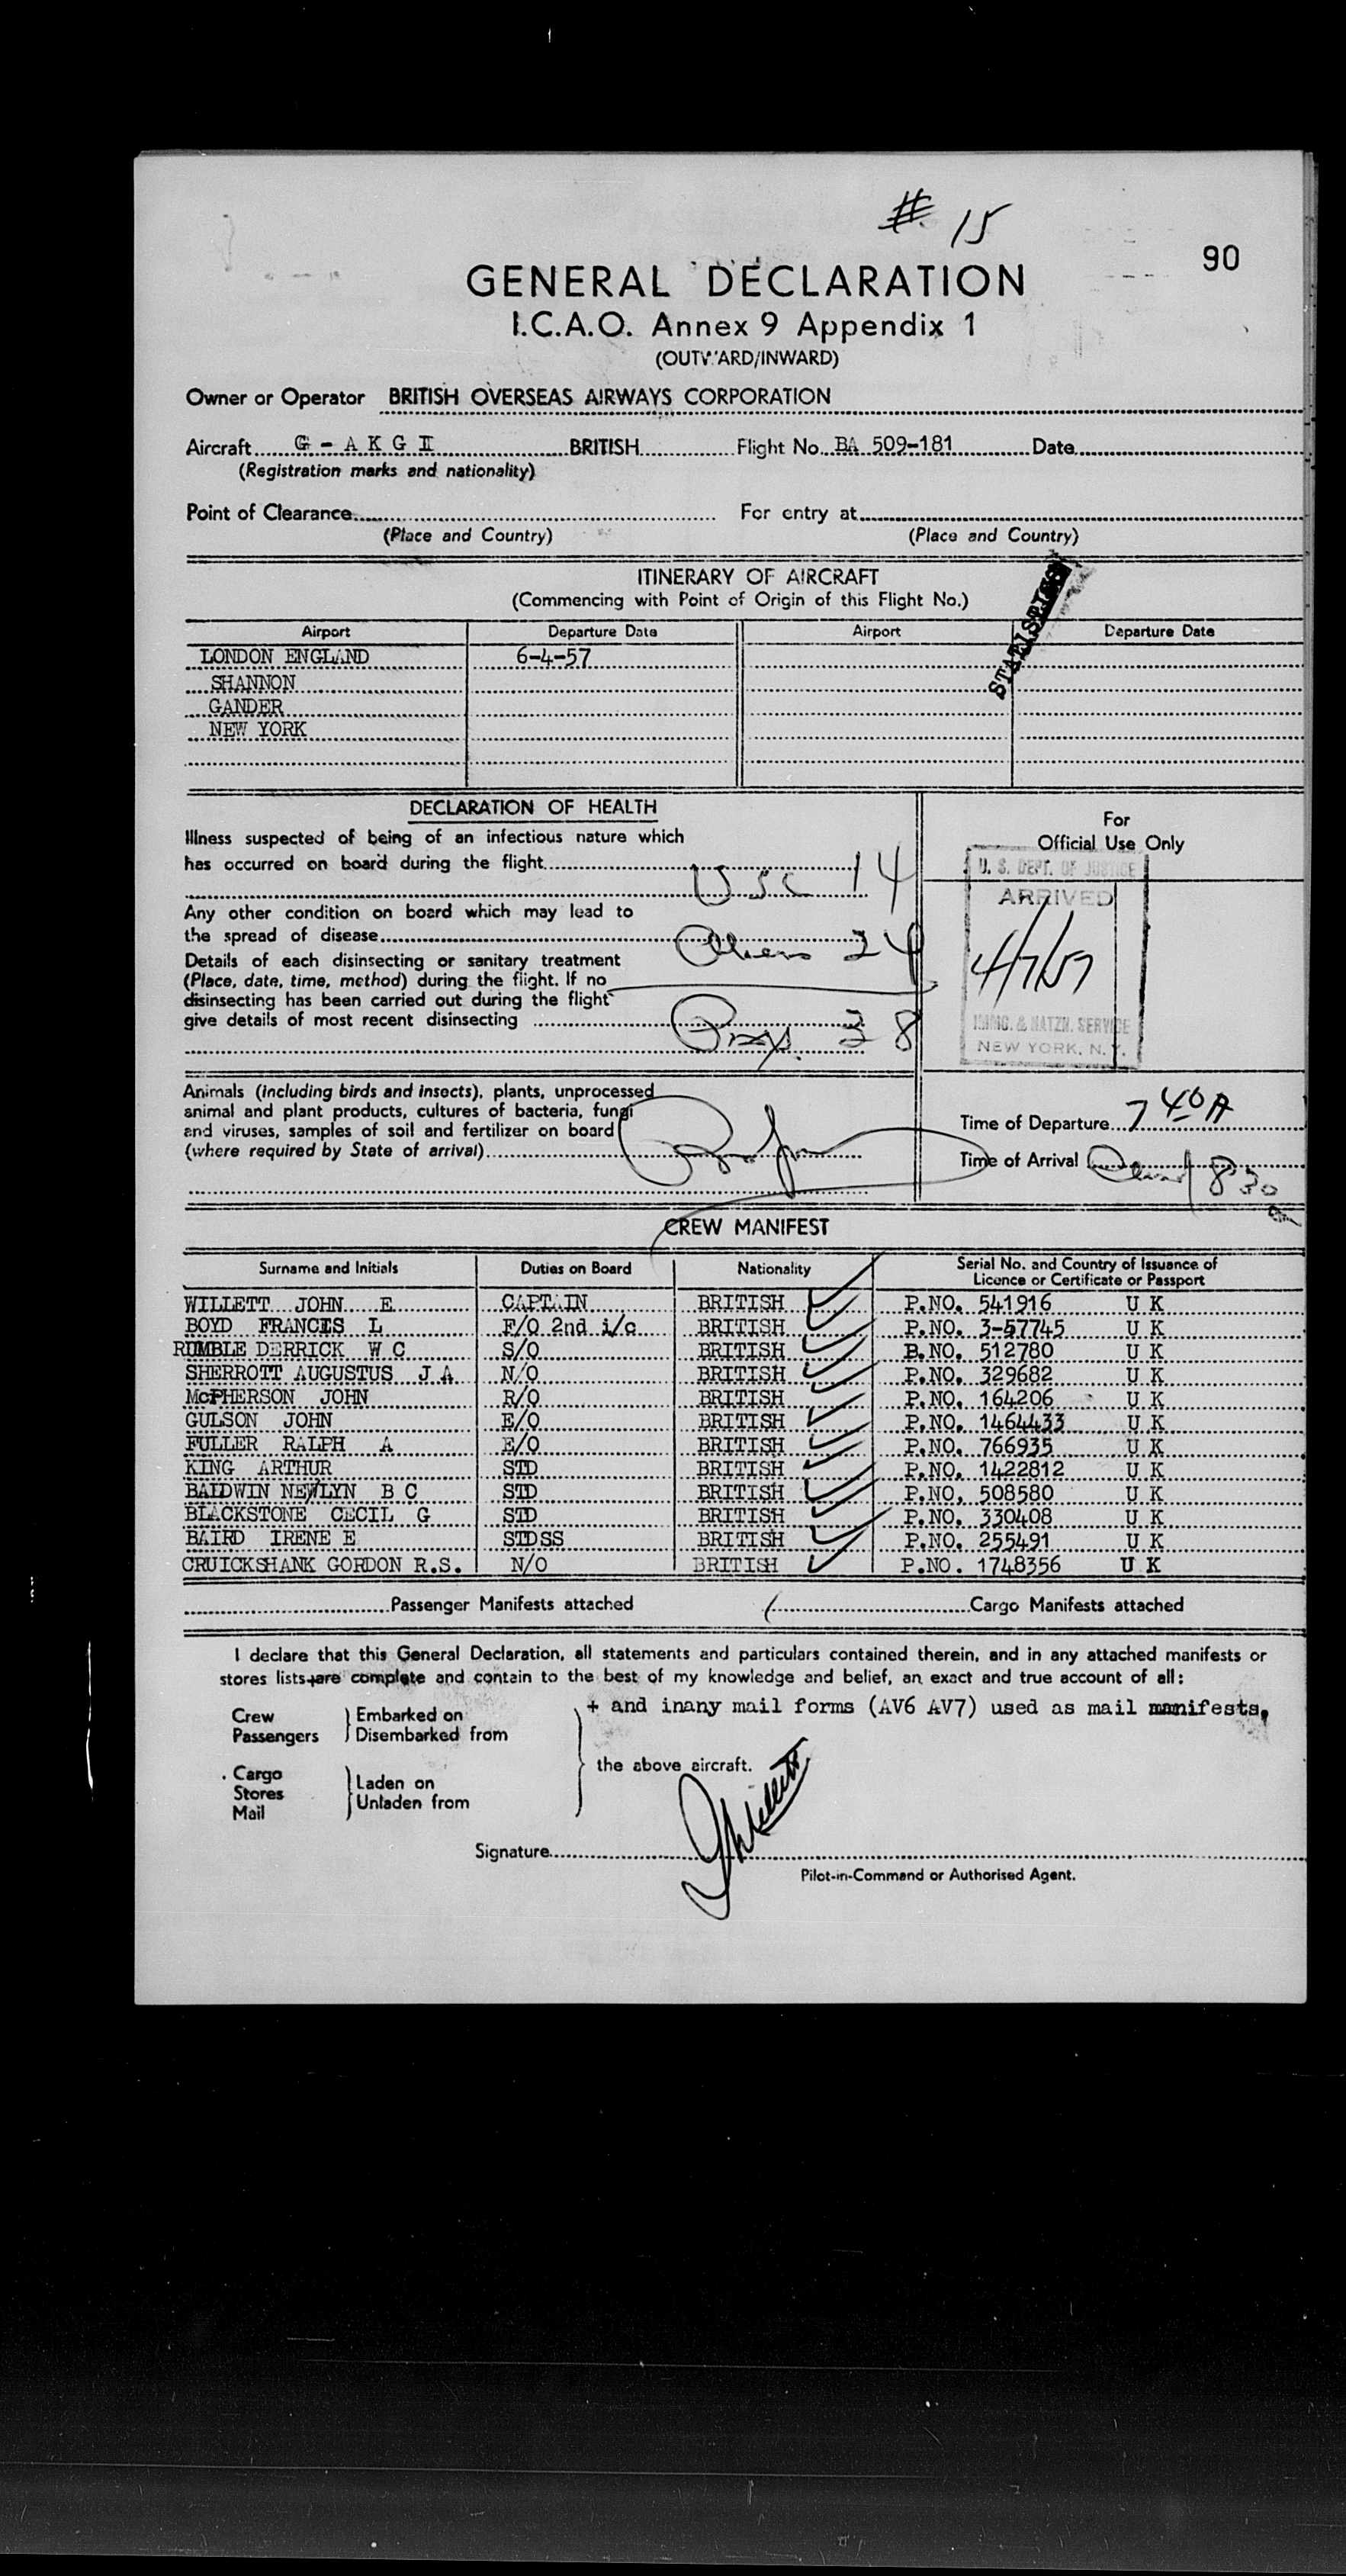 # 15
90
GENERAL DECLARATION
I.C.A.O. Annex 9 Appendix 1
(OUTWARD/INWARD)
Owner or Operator BRITISH OVERSEAS AIRWAYS CORPORATION
Aircraft G - A K G II BRITISH Flight No. BA 509-181 Date
(Registration marks and nationality)
Point of Clearance For entry at
(Place and Country) (Place and Country)
ITINERARY OF AIRCRAFT
(Commencing with Point of Origin of this Flight No.)
Airport Departure Date Airport Departure Date
LONDON ENGLAND 6-4-57
SHANNON
GANDER
NEW YORK
DECLARATION OF HEALTH
Illness suspected of being of an infectious nature which
has occurred on board during the flight
USC 14
Any other condition on board which may lead to
the spread of disease
Aliens 24
Details of each disinsecting or sanitary treatment
(Place, date, time, method) during the flight. If no
disinsecting has been carried out during the flight
give details of most recent disinsecting
38
Animals (including birds and insects), plants, unprocessed
animal and plant products, cultures of bacteria, fungi
and viruses, samples of soil and fertilizer on board
(where required by State of arrival)
For
Official Use Only
U. S. DEPT. OF JUSTICE
ARRIVED
4/7/57
IMMIG. & NATZN. SERVICE
NEW YORK, N. Y.
Time of Departure 7 40 A
Time of Arrival 8 30
CREW MANIFEST
Surname and Initials Duties on Board Nationality Serial No. and Country of Issuance of
Licence or Certificate or Passport
WILLETT JOHN E CAPTAIN BRITISH P.NO. 541916 U K
BOYD FRANCIS L F/O 2nd i/c BRITISH P.NO. 3-57745 U K
RUMBLE DERRICK W C S/O BRITISH P.NO. 512780 U K
SHERROTT AUGUSTUS J A N/O BRITISH P.NO. 329682 U K
McPHERSON JOHN R/O BRITISH P.NO. 164206 U K
GULSON JOHN E/O BRITISH P.NO. 1464433 U K
FULLER RALPH A E/O BRITISH P.NO. 766935 U K
KING ARTHUR STD BRITISH P.NO. 1422812 U K
BALDWIN NEWLYN B C STD BRITISH P.NO. 508580 U K
BLACKSTONE CECIL G STD BRITISH P.NO. 330408 U K
BAIRD IRENE E STDSS BRITISH P.NO. 255491 U K
CRUICKSHANK GORDON R.S. N/O BRITISH P.NO. 1748356 U K
Passenger Manifests attached Cargo Manifests attached
I declare that this General Declaration, all statements and particulars contained therein, and in any attached manifests or
stores lists+are complete and contain to the best of my knowledge and belief, an exact and true account of all:
+ and inany mail forms (AV6 AV7) used as mail manifests.
Crew Embarked on
Passengers Disembarked from
the above aircraft.
Cargo
Stores Laden on
Mail Unladen from
Signature JWillett
Pilot-in-Command or Authorised Agent.